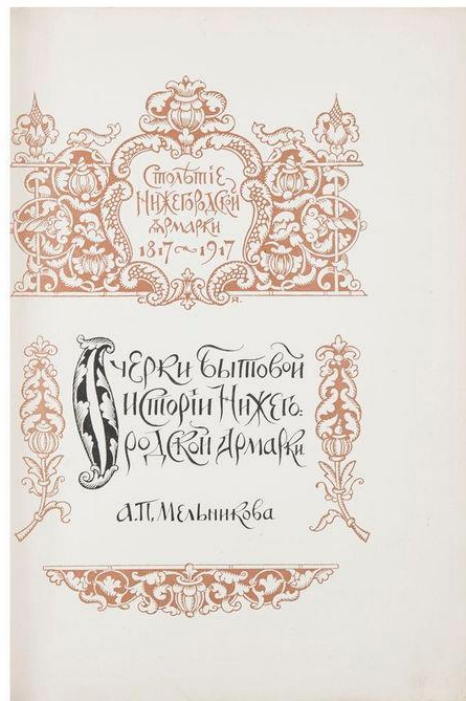 Столѣтіе
Нижегородской
Ярмарки
1817~1917
Очерки бытовой
исторіи Нижего-
родской Ярмарки
А.П. Мельникова